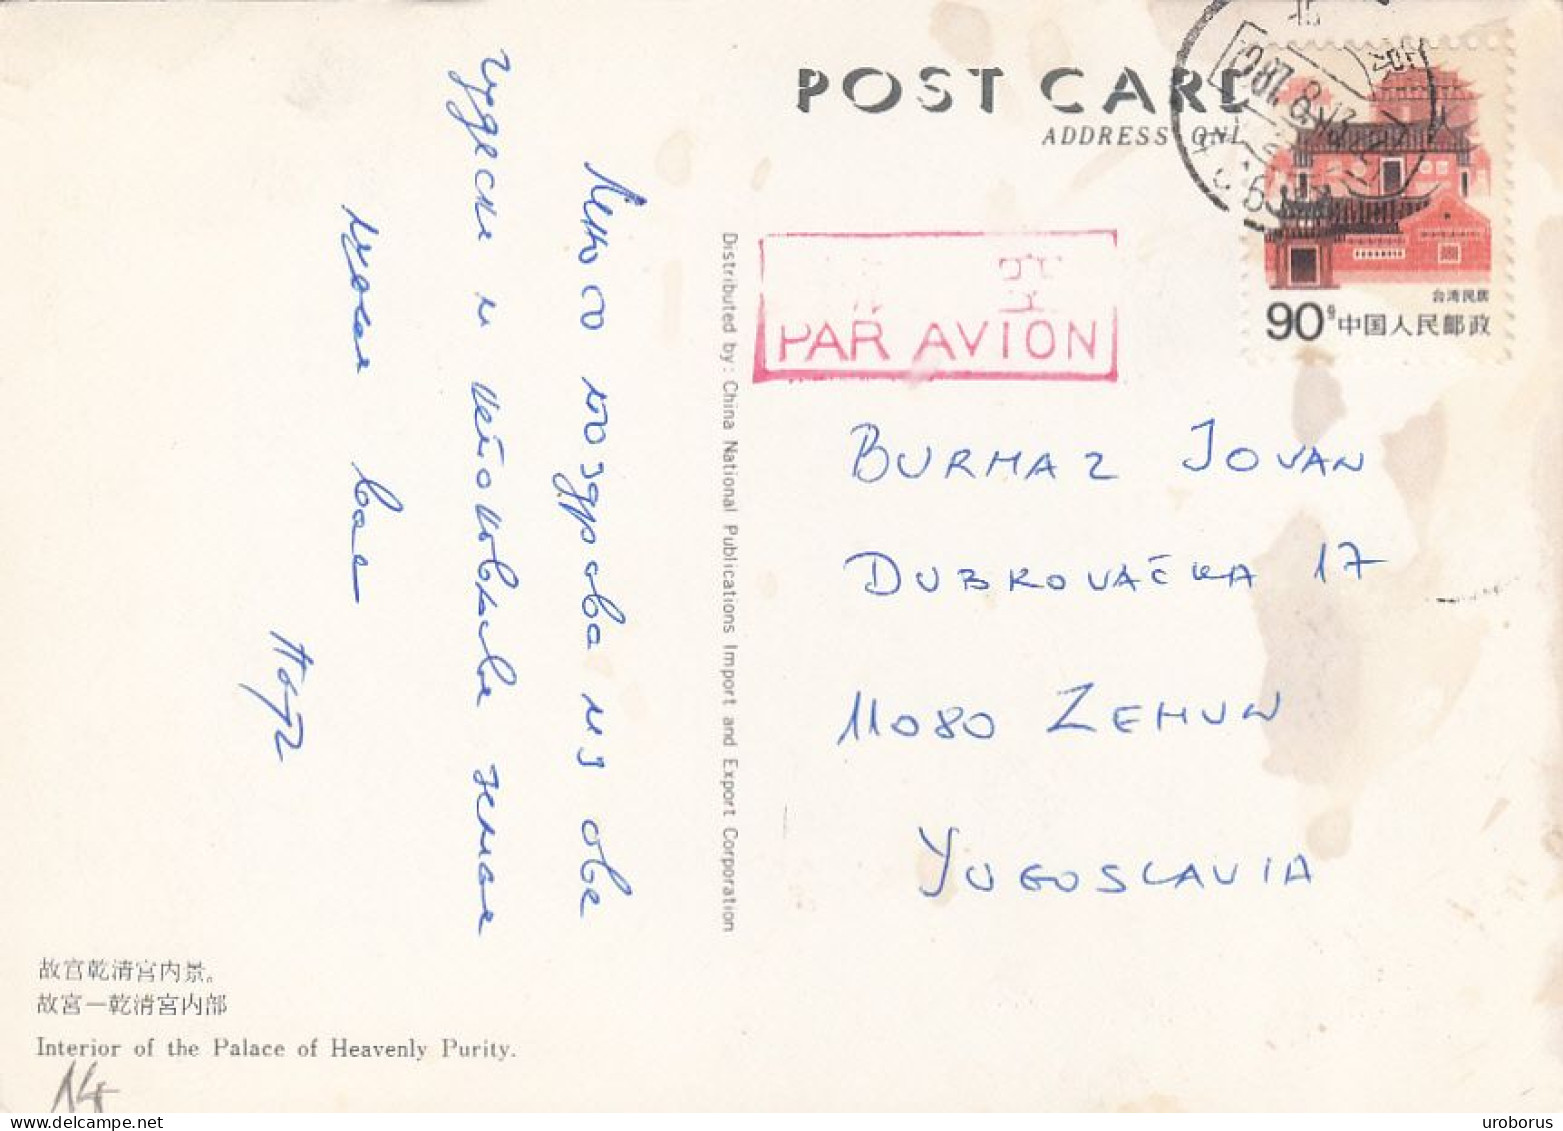 POST CARD
ADDRESS ONL
PAR AVION
台湾民居
90分 中国人民邮政
BURMAZ JOVAN
DUBROVAČKA 17
11080 ZEMUN
YUGOSLAVIA
Distributed by: China National Publications Import and Export Corporation
Много поздрава из ове
чудесне и непоновљиве земље
воли вас
故宫乾清宫内景。
故宮一乾清宮内部
Interior of the Palace of Heavenly Purity.
14
uroborus